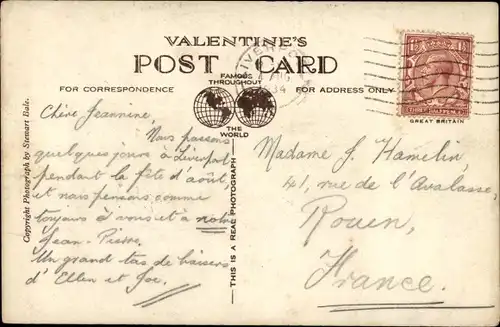 VALENTINE'S
POST CARD
FAMOUS
THROUGHOUT
THE
WORLD
FOR CORRESPONDENCE
FOR ADDRESS ONLY
GREAT BRITAIN
Copyright Photograph by Stewart Bale.
THIS IS A REAL PHOTOGRAPH
Chère Jeannine,
Nous passons
quelques jours à Liverpool
pendant la fête d'août
et nous pensons comme
toujours à vous et à notre
Jean-Pierre.
Un grand tas de baisers
d'Ellen et Joe.
Madame J. Hamelin,
41, rue de l'Avalasse,
Rouen,
France.